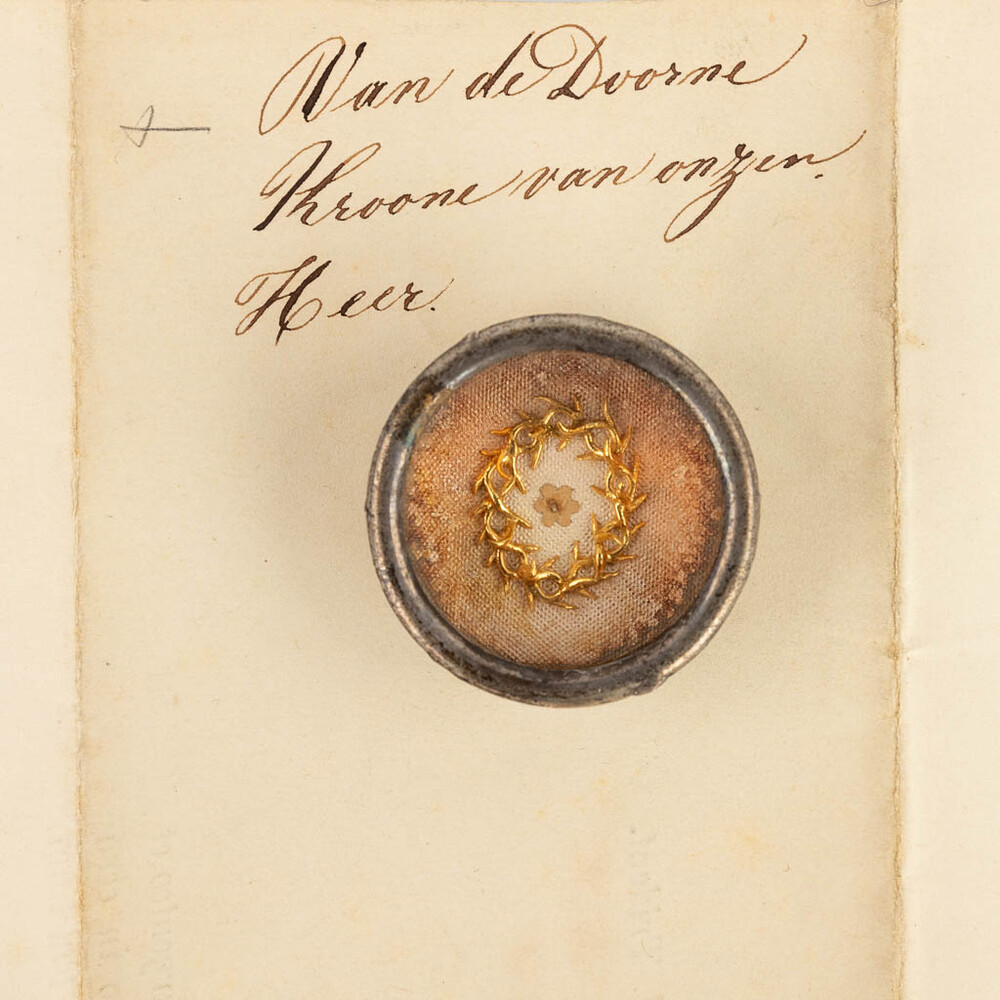 Van de Doorne
Kroone van onzen
Heer.